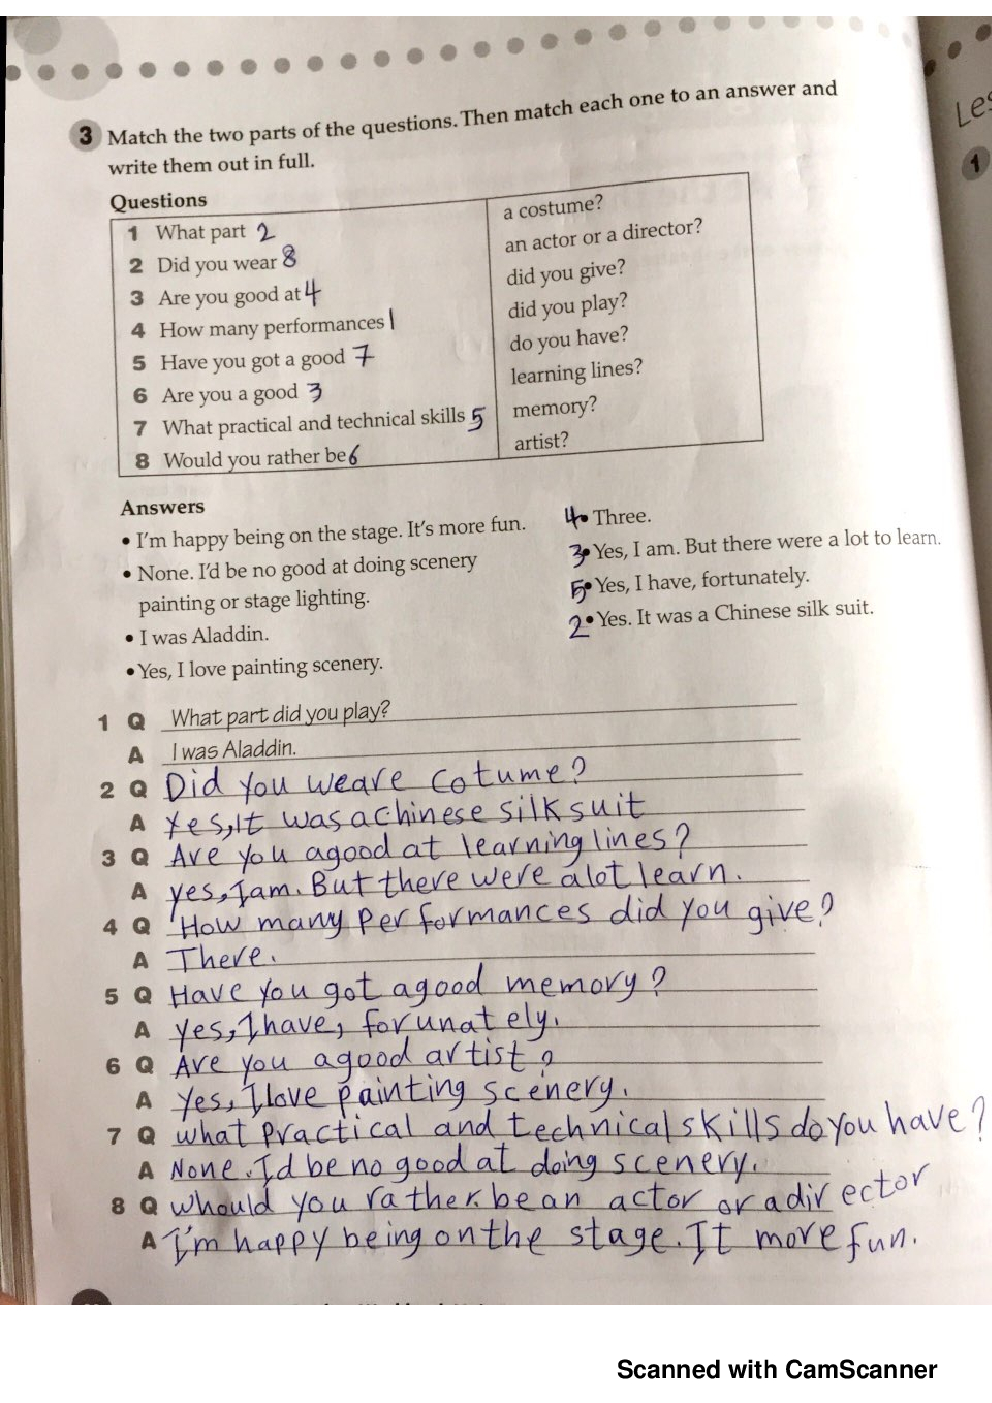 Les
1
3 Match the two parts of the questions. Then match each one to an answer and
write them out in full.
Questions
1 What part 2
2 Did you wear 8
3 Are you good at 4
4 How many performances 1
5 Have you got a good 7
6 Are you a good 3
7 What practical and technical skills 5
8 Would you rather be 6
a costume?
an actor or a director?
did you give?
did you play?
do you have?
learning lines?
memory?
artist?
Answers
• I'm happy being on the stage. It's more fun.
• None. I'd be no good at doing scenery
painting or stage lighting.
• I was Aladdin.
• Yes, I love painting scenery.
4 • Three.
3 • Yes, I am. But there were a lot to learn.
5 • Yes, I have, fortunately.
2 • Yes. It was a Chinese silk suit.
1 Q What part did you play?
A I was Aladdin.
2 Q Did you weare cotume?
A Yes, It was a chinese silk suit
3 Q Are you agood at learning lines?
A yes, I am. But there were alot learn.
4 Q How many performances did you give?
A There.
5 Q Have you got agood memory?
A yes, I have, forunately.
6 Q Are you agood artist?
A Yes, I love painting scenery.
7 Q what practical and technical skills do you have?
A None. Id be no good at doing scenery.
8 Q whould you rather be an actor or adirector
A I'm happy being on the stage. It more fun.
Scanned with CamScanner